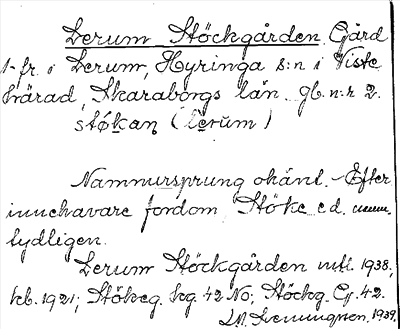 Lerum Stöckgården Gård
1 fr. i Lerum, Hyringa s:n i Viste
härad, Skaraborgs län. gb. n:r 2.
stø̄kan (Lerum)
Namnursprung okänt. - Efter
innehavare fordom Stöke e.d.
tydligen.
Lerum Stöckgården mtl. 1938,
kb. 1921; Stökeg. hg. 42 No; Stöckg. Cg. 42.
1939.